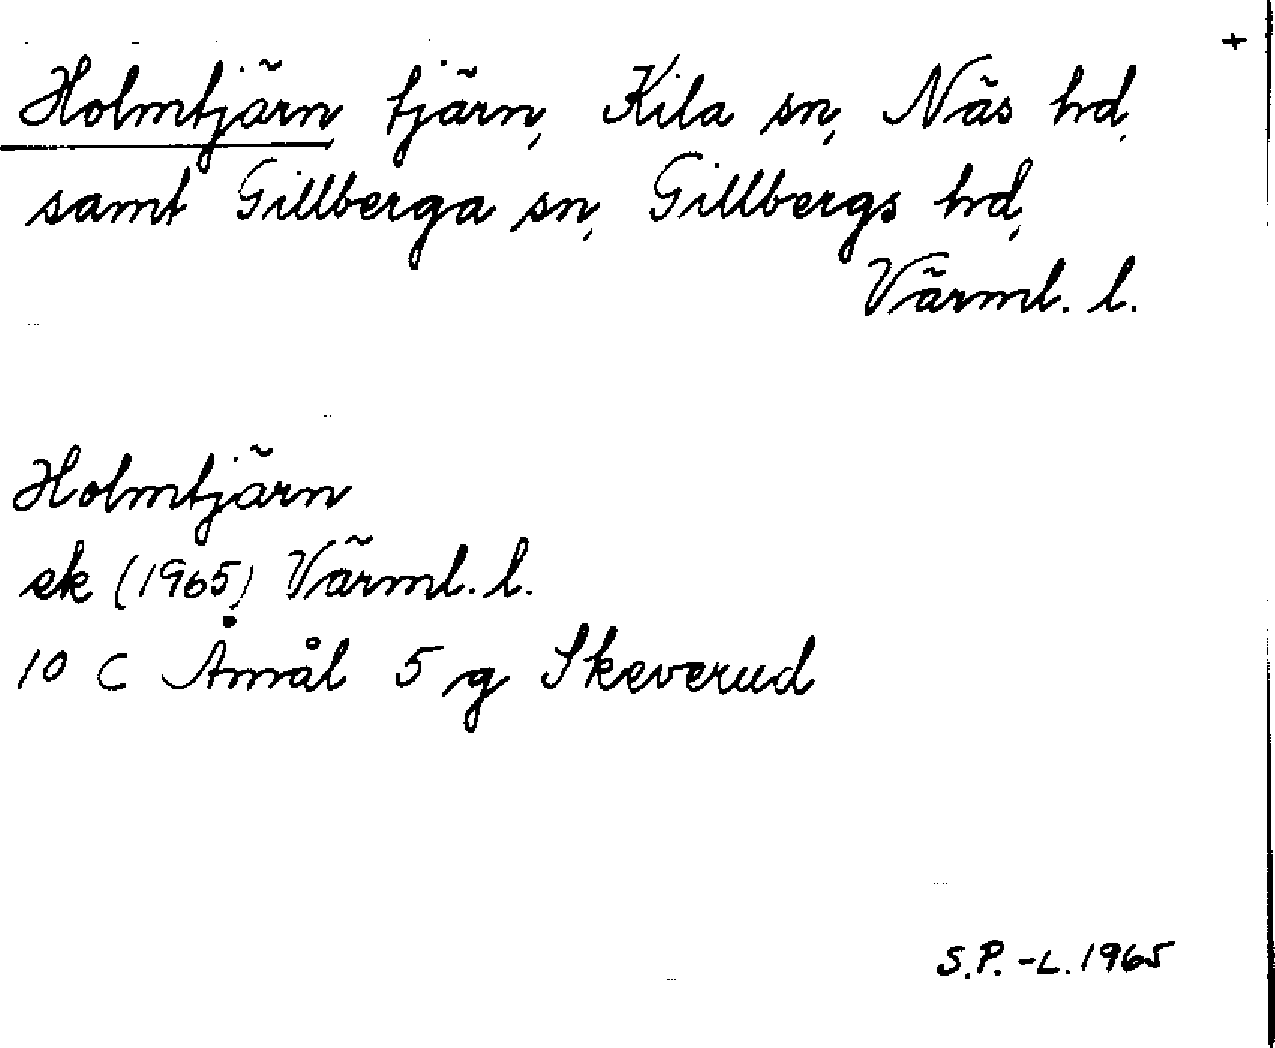 +
Holmtjärn, tjärn, Kila sn, Näs hd,
samt Gillberga sn, Gillbergs hd,
Värml. l.
Holmtjärn
ek (1965) Värml. l.
10 C Åmål 5 g Skeverud
S.P.-L. 1965